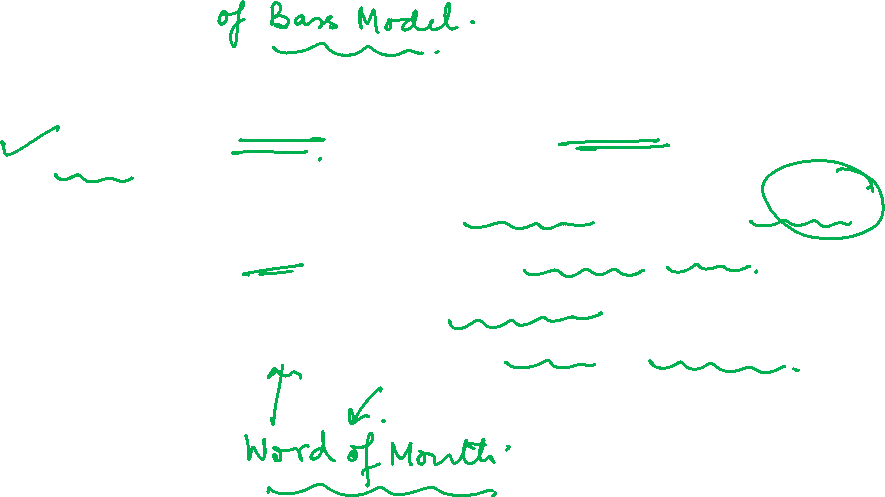 of Bass Model.
Word of Mouth.